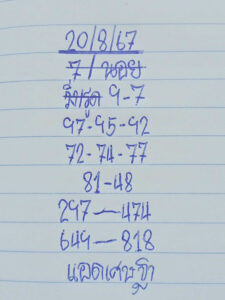 20/8/67
7 / นอย
วิ่งรูด 9-7
97-95-92
72-74-77
81-48
297—474
649—818
แอดเศษฐา